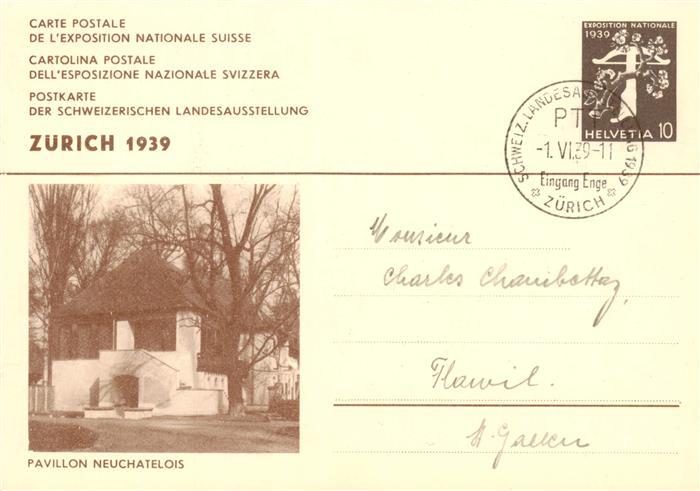 CARTE POSTALE
DE L'EXPOSITION NATIONALE SUISSE
CARTOLINA POSTALE
DELL'ESPOSIZIONE NAZIONALE SVIZZERA
POSTKARTE
DER SCHWEIZERISCHEN LANDESAUSSTELLUNG
ZÜRICH 1939
EXPOSITION NATIONALE
1939
HELVETIA 10
SCHWEIZ. LANDESA 1939
PT
-1.VI.39-11
Eingang Enge
ZÜRICH
Monsieur
Charles Chambettaz,
Flawil.
St. Gallen
PAVILLON NEUCHATELOIS